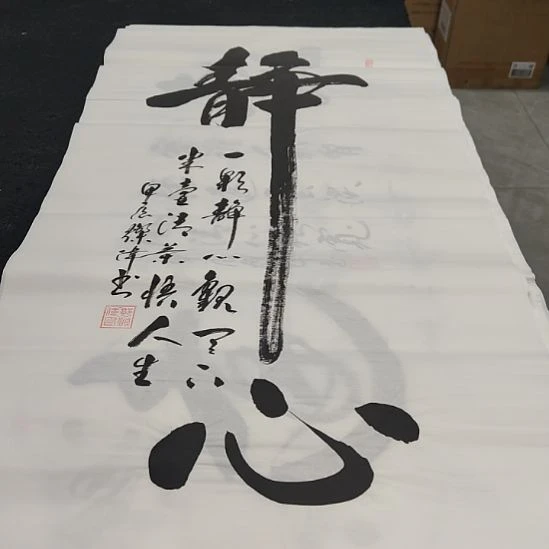 静心
一颗静心觀天下
半壶清茶悟人生
甲辰 书